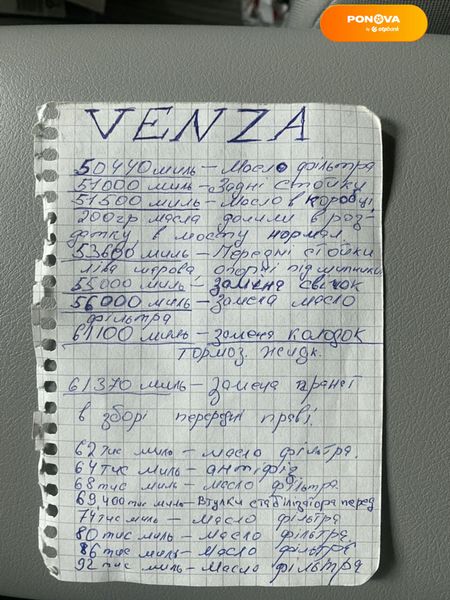 PONOVA
by otpbank
VENZA
50440 миль – Масло фільтра
51000 миль – Задні стойки
51500 миль – Масло в коробці
200гр масла долили в роз-
датку, в мосту нормал.
53600 миль – Передні стойки
ліва шарова опорні підшипники
55000 миль – замена свічок
56000 миль – Замена масло
фільтра
61100 миль – замена колодок
тормоз. жидк.
61370 миль – Замена
в зборі передні праві.
62 тис миль – масло фільтра.
64 тис миль – антіфріз
68 тис миль – масло фільтра
69,400 тис миль – Втулки стабілізатора перед
74 тис миль – Масло фільтра
80 тис миль – Масло фільтра
86 тис миль – Масло фільтра
92 тис миль – Масло фільтра